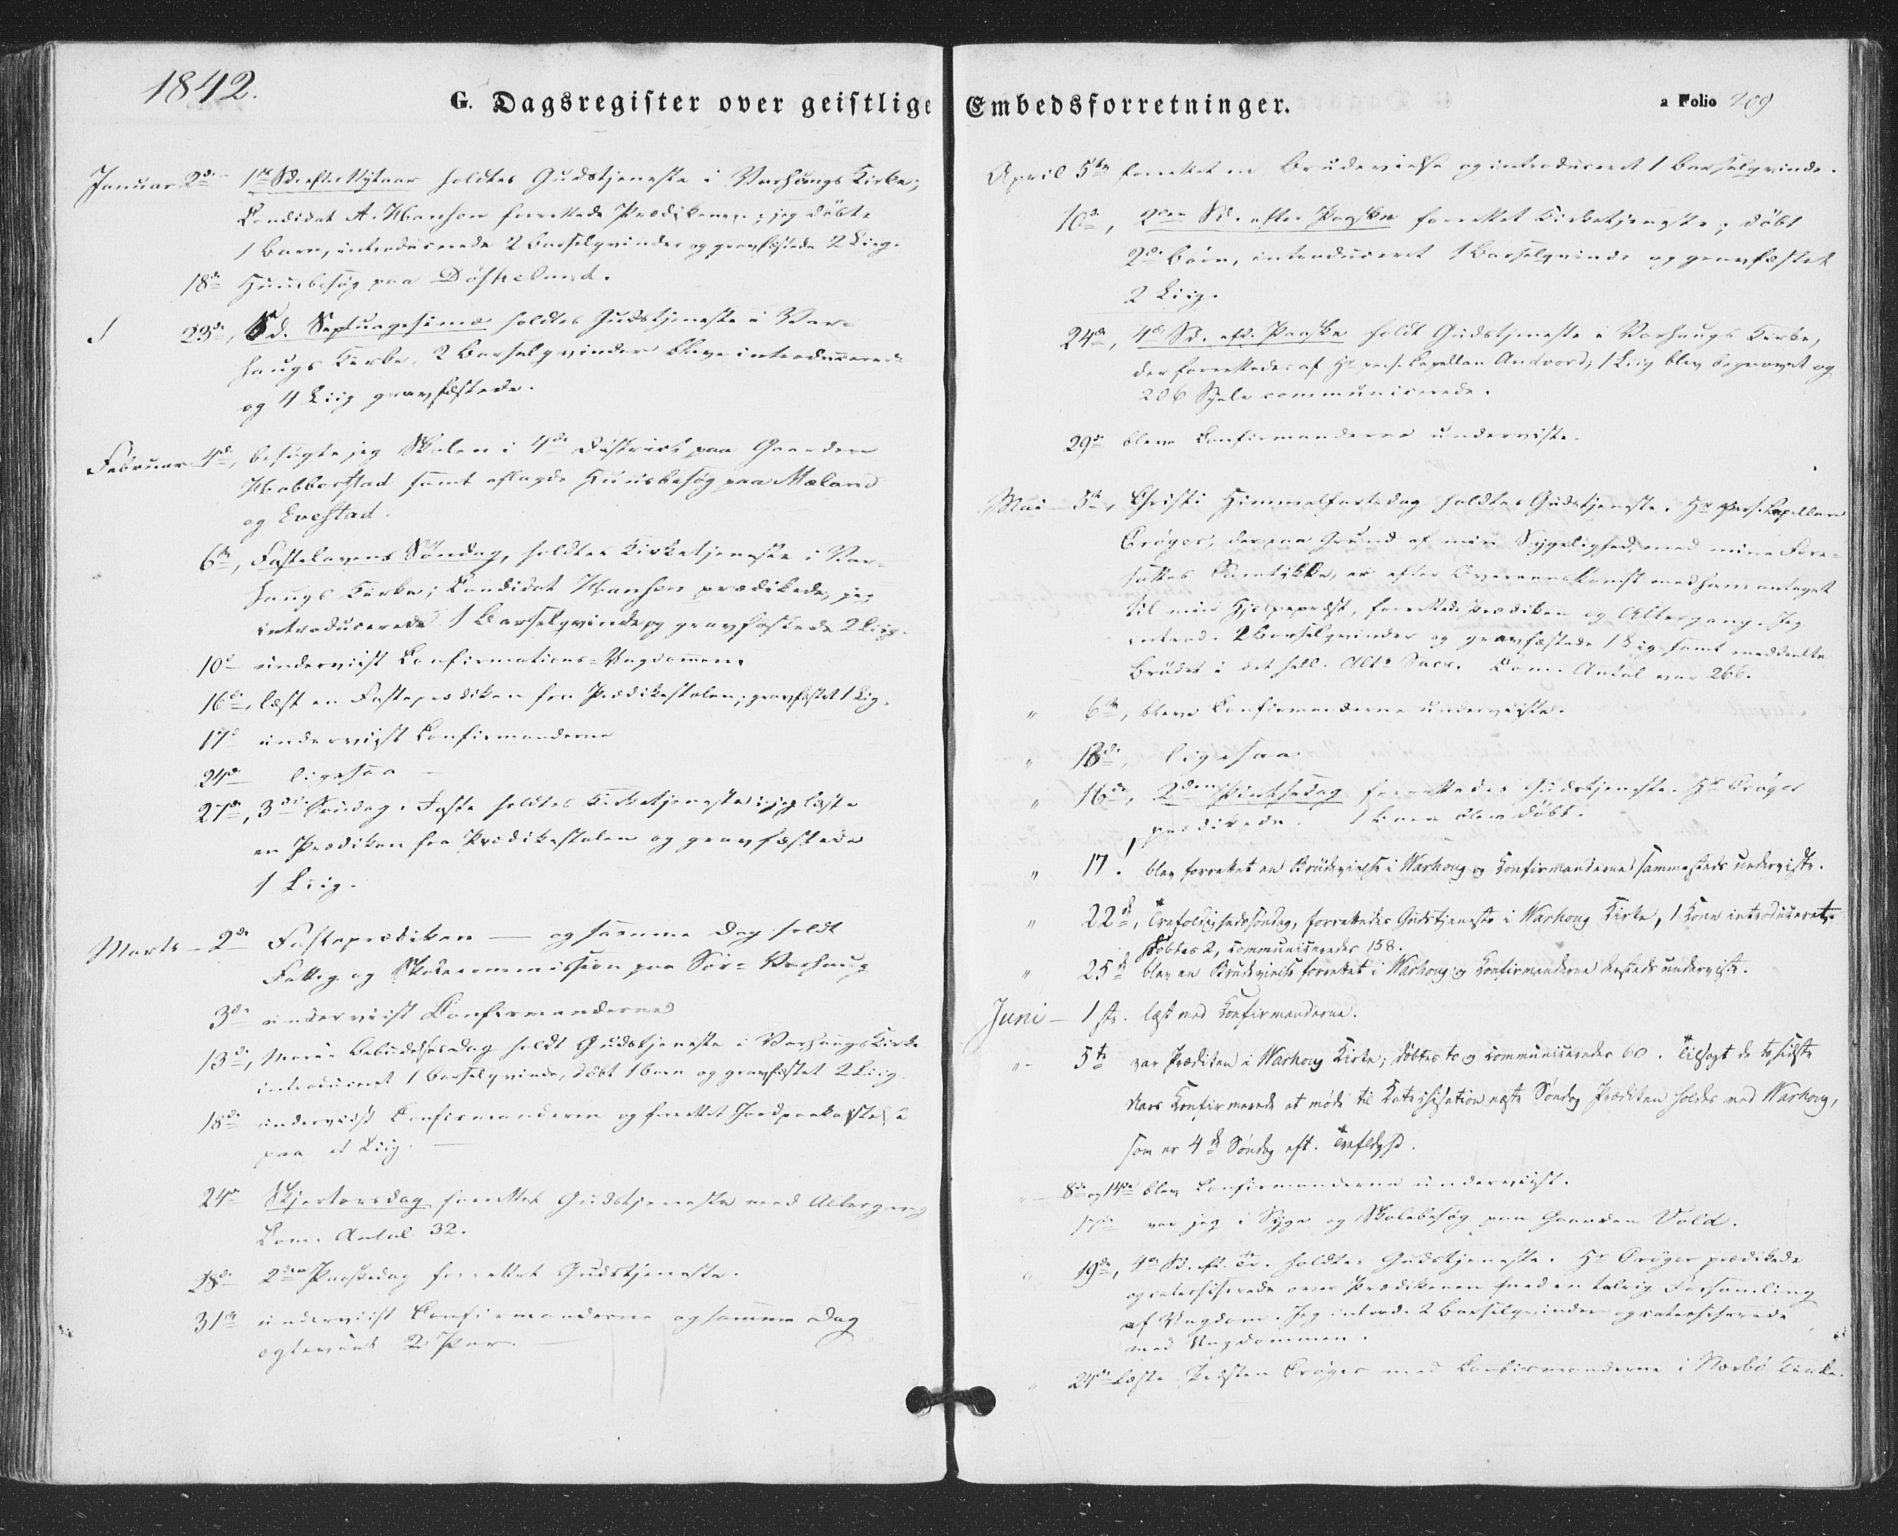 1842.
G. Dagsregister over geistlige
Januar 2de 1ste Sd. efter Nytaar holdtes Gudstjeneste i Varhaugs Kirke;
Candidat A. Hansen forrettede Prædikenen; jeg døbte
1 Barn, introducerede 2 Barselqvinder og gravfæstede 2 Liig.
18de Huusbesøg paa Døskeland.
23de, Sd. Septuagesima holdtes Gudstjeneste i Var-
haugs Kirke. 2 Barselqvinder bleve introducerede
og 4 Liig gravfæstede.
Februar 4de, besøgte jeg Skolen i 4de District paa Gaarden
Habberstad samt aflagde Huusbesøg paa Mæland
og Evestad.
6te, Fastelavens Søndag, holdtes Kirketjeneste i Var-
haugs Kirke; Candidat Hansen prædikede, jeg
introducerede 1 Barselqvinde og gravfæstede 2 Liig.
10de underviist Confirmations-Ungdommen.
16de, læst en Fasteprædiken fra Prædikestolen; gravfæstet 1 Liig.
17de underviist Confirmanderne
24de ligesaa —
27de, 3die Søndag i Faste holdtes Kirketjeneste; jeg læste
en Prædiken fra Prædikestolen og gravfæstede
1 Liig.
Marts — 2de Fasteprædiken — og samme Dag holdt
Fattig og Skolecommission paa Sør-Varhaug
3de underviist Confirmanderne
13de, Mariæ Bebudelsesdag holdt Gudstjeneste i Varhaugs Kirke
introduceret 1 Barselqvinde, døbt 1 Barn og gravfæstet 2 Liig.
18de underviist Confirmanderne og forrettet Jordpaakastelse
paa et Liig. —
24de Skjærtorsdag forrettet Gudstjeneste med Altergang
Com. Antal 32.
28de 2den Paaskedag forrettet Gudstjeneste.
31te underviist Confirmanderne og samme Dag
ægteviet 2 Par. —
Embedsforretninger.
a Folio 209
April 5te forrettet en Brudevielse og introduceret 1 Barselqvinde.
10de, 2den Sd. efter Paaske forrettet Kirketjeneste; døbt
2de Børn, introduceret 1 Barselqvinde og gravfæstet
2 Liig.
24de, 4de Sd. eft. Paaske holdt Gudstjeneste i Varhaugs Kirke,
der forrettedes af Hr. pers. Capellan Andvord; 1 Liig blev begravet og
206 Sjele communicerede.
29de bleve Confirmanderne underviste.
Mai — 5te, Christi Himmelfartsdag holdtes Gudstjeneste. Hr. pers. Capellan
Crøger, der paa Grund af min Sygelighed, med mine Fore-
sattes Samtykke, er efter Overeenskomst med ham antaget
til min Hjelpepræst, forrettede Prædiken og Altergang. Jeg
introd. 2 Barselqvinder og gravfæstede 1 Liig samt meddeelte
Brødet i det hell. Alt. Sacr. Com. Antal var 266.
" 6te, bleve Confirmanderne underviste.
" 13de, ligesaa
" 16de, 2den Pintsedag forrettedes Gudstjeneste. Hr. Crøger
prædikede. 1 Barn blev døbt.
" 17. blev forrettet en Brudevielse i Warhoug og Konfirmanderne sammesteds underviste.
" 22de, Trefoldighedssøndag, forrettedes Gudstjeneste i Warhoug Kirke, 1 Kone introduceret,
døbtes 2, communicerede 158.
" 25de blev en Brudevielse forrettet i Warhoug og Konfirmanderne dersteds underviste.
Juni — 1ste. læst med Konfirmanderne.
" — 5te var Prædiken i Warhoug Kirke; døbtes to og communicerede 60. Tilsagt de to sidste
Aars Konfirmerede at møde til Katechisation næste Søndag Prædiken holdes ved Warhoug,
som er 4de Søndag eft. Trefoldhd.
" — 8de og 14de blev Confirmanderne underviist.
17de var jeg i Syge og Skolebesøg paa Gaarden Vold.
" 19de, 4de Sd. eft. Tr. holdtes Gudstjeneste. Hr. Crøger prædikede
og catechiserede over Prædikenen med en talrig Forsamling
af Ungdom. Jeg introd. 2 Barselqvinder og catechiserede
med Ungdommen.
" 24de læste Præsten Crøger med Confirmanderne i Nærbø Kirke.